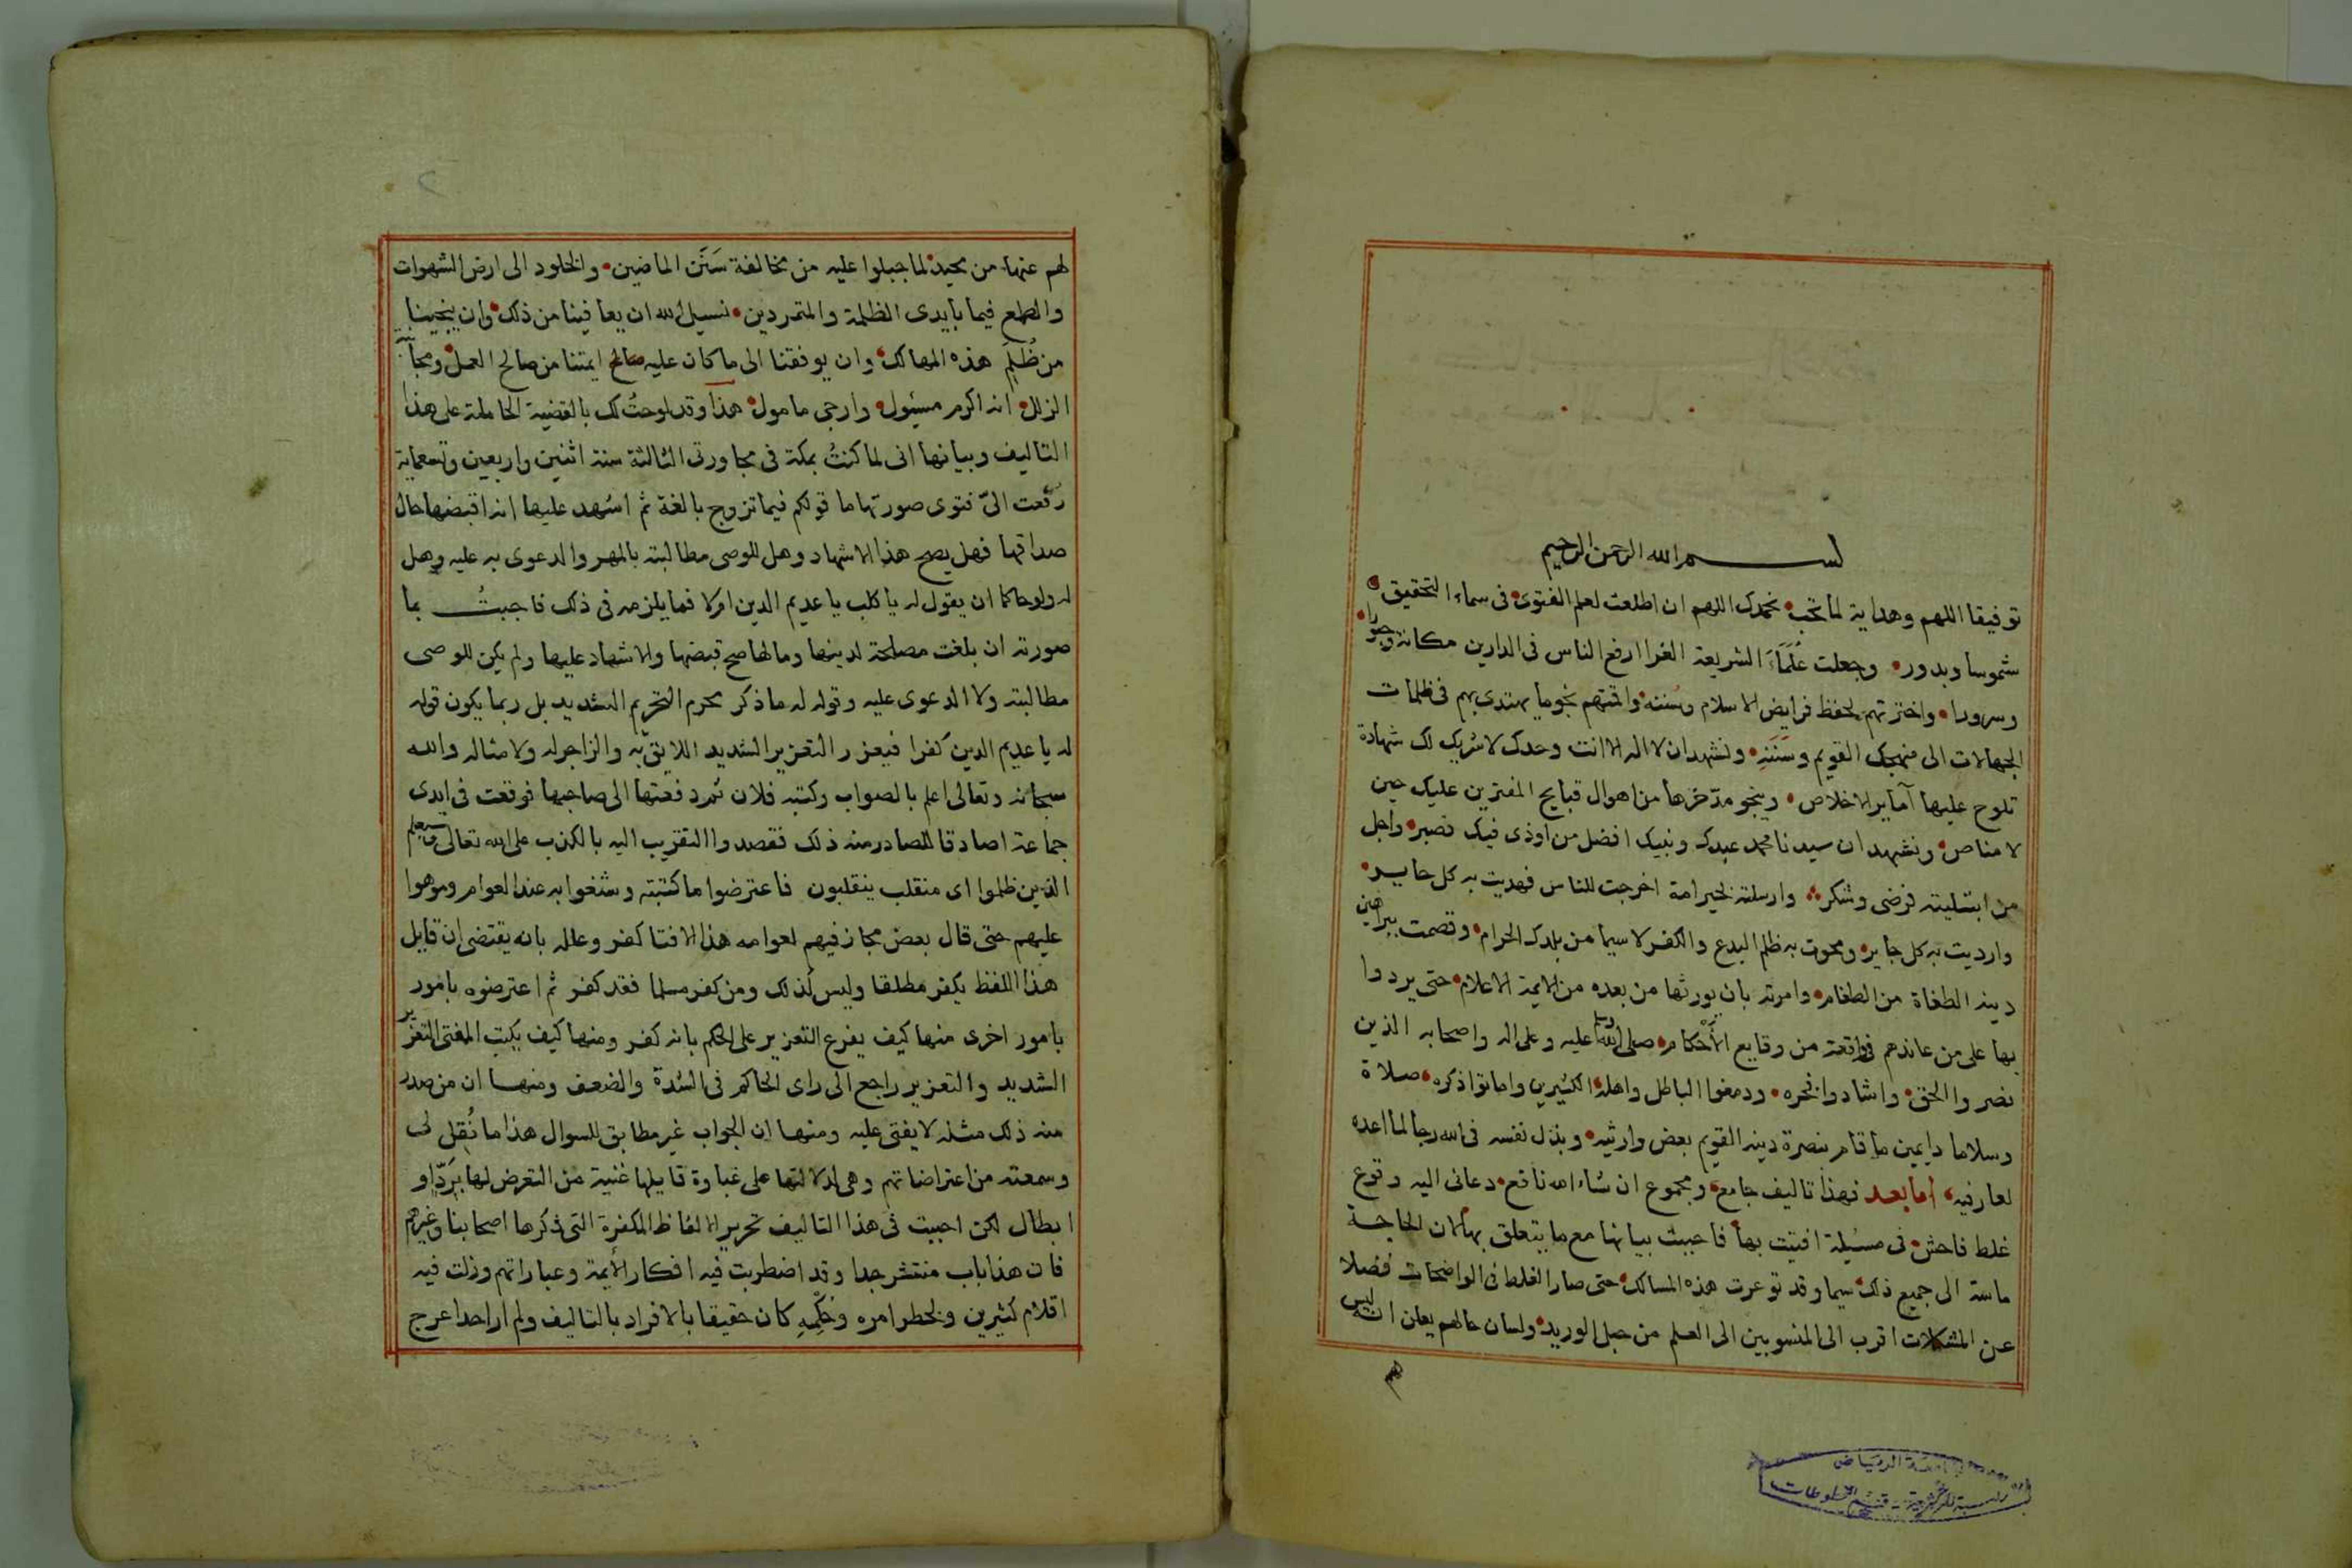 بســـم الله الرحمن الرحيم
توفيقا اللهم وهداية لما تحب نحمدك اللهم ان اطلعت لعلم الفتوى في سماء التحقيق
شموسا وبدور وجعلت عُلَمَاءَ الشريعة الغرا ارفع الناس في الدارين مكانة وحبورا
وسرورا واخترتهم لحفظ فرايض الاسلام وسُننه واقمتهم نجوما يهتدى بهم في ظلمات
الجهالات الى منهجك القويم وسَنَنِه ونشهد ان لا اله الا انت وحدك لا شريك لك شهادة
تلوح عليها آمايير الاخلاص وينجو مدّخرها من اهوال قبايح المفترين عليك حين
لا مناص ونشهد ان سيدنا محمد عبدك ونبيك افضل من اوذى فيك فصبر واجل
من ابتليته فرضى وشكر وارسلته لخير امة اخرجت للناس فهديت به كل حايد
وارديت به كل جاير ومحوت به ظلم البدع والكفر لا سيما من بلدك الحرام وقصمت ببراهين
دينه الطغاة من الطغام وامرته بان يورثها من بعده من الايمة الاعلام حتى يردوا
بها على من عاندهم في واقعة من وقايع الأحْكام صلى الله وسلم عليه وعلى اله واصحابه الذين
نصروا الحق واشادوا فخره ودمغوا الباطل واهله الكثيرين واماتوا ذكره صلاة
وسلاما دايمين ما قام بنصرة دينه القويم بعض وارثيه وبذل نفسه في الله رجا لما اعده
لعارفيه اما بعد فهذا تاليف جامع ومجموع ان شاء الله نافع دعانى اليه وقوع
غلط فاحش في مسيلة افتيت بها فاحببت بيانها مع ما يتعلق بها لان الحاجة
ماسة الى جميع ذلك سيما وقد توعرت هذه المسالك حتى صار الغلط في الواضحات فضلا
عن المشكلات اقرب الى المنسوبين الى العلم من حبل الوريد ولسان حالهم يعلن انه ليس
لهم
لهم عنها من محيد لما جبلوا عليه من مخالفة سَنَن الماضين والخلود الى ارض الشهوات
والطمع فيما بايدى الظلمة والمتمردين نسيل الله ان يعافينا من ذلك وان ينجينا
من ظُلَم هذه المهالك وان يوفقنا الى ما كان عليه صالح ايمتنا من صالح العمل ومجانبة
الزلل انه اكرم مسئول وارجى مامول هذا وقد لوحتُ لك بالقضية الحاملة على هذا
التاليف وبيانها انى لما كنتُ بمكة في مجاورتى الثالثة سنة اثنين واربعين وتسعماية
رُفعت الىّ فتوى صورتها ما قولكم فيما تزوج بالغة ثم اشهد عليها انه اقبضها حال
صداقها فهل يصح هذا الاشهاد وهل للوصى مطالبته بالمهر والدعوى به عليه وهل
له ولو حاكما ان يقول له يا كلب يا عديم الدين ام لا فما يلزمه في ذلك فاجبتُ بما
صورته ان بلغت مصلحة لدينها ومالها صح قبضها والاشهاد عليها ولم يكن للوصى
مطالبته ولا الدعوى عليه وقوله له ما ذكر محرم التحريم الشديد بل ربما يكون قوله
له يا عديم الدين كفرا فيعزر التعزير الشديد اللايق به والزاجر له ولامثاله والله
سبحانه وتعالى اعلم بالصواب وكتبه فلان ثم دفعتها الى صاحبها فوقعت في ايدى
جماعة اصادقا للصادر منه ذلك فقصدوا التقريب اليه بالكذب على الله تعالى وسيعلم
الذين ظلموا اى منقلب ينقلبون فاعترضوا ما كتبته وشنعوا به عند العوام وموهوا
عليهم حتى قال بعض مجازفيهم لعوامه هذا الافتا كفر وعلله بانه يقتضى ان قايل
هذا اللفظ يكفر مطلقا وليس كذلك ومن كفر مسلما فقد كفر ثم اعترضوه بامور
بامور اخرى منها كيف يفرع التعزير على الحكم بانه كفر ومنها كيف يكتب المفتى التعزير
الشديد والتعزير راجع الى راى الحاكم في الشدة والضعف ومنها ان من صدر
منه ذلك مثله لا يفتى عليه ومنها ان الجواب غير مطابق للسوال هذا ما نُقل لى
وسمعته من اعتراضاتهم وهى لدلالتها على غباوة قايلها غنية من التعرض لها بِرَدّ او
ابطال لكن احببت في هذا التاليف تحرير الالفاظ المكفرة التى ذكرها اصحابنا وغيرهم
فان هذا باب منتشر جدا وقد اضطربت فيه افكار الأيمة وعباراتهم وزلت فيه
اقلام كثيرين ولخطر امره وحُكْمِه كان حقيقا بالافراد بالتاليف ولم ار احدا عرج